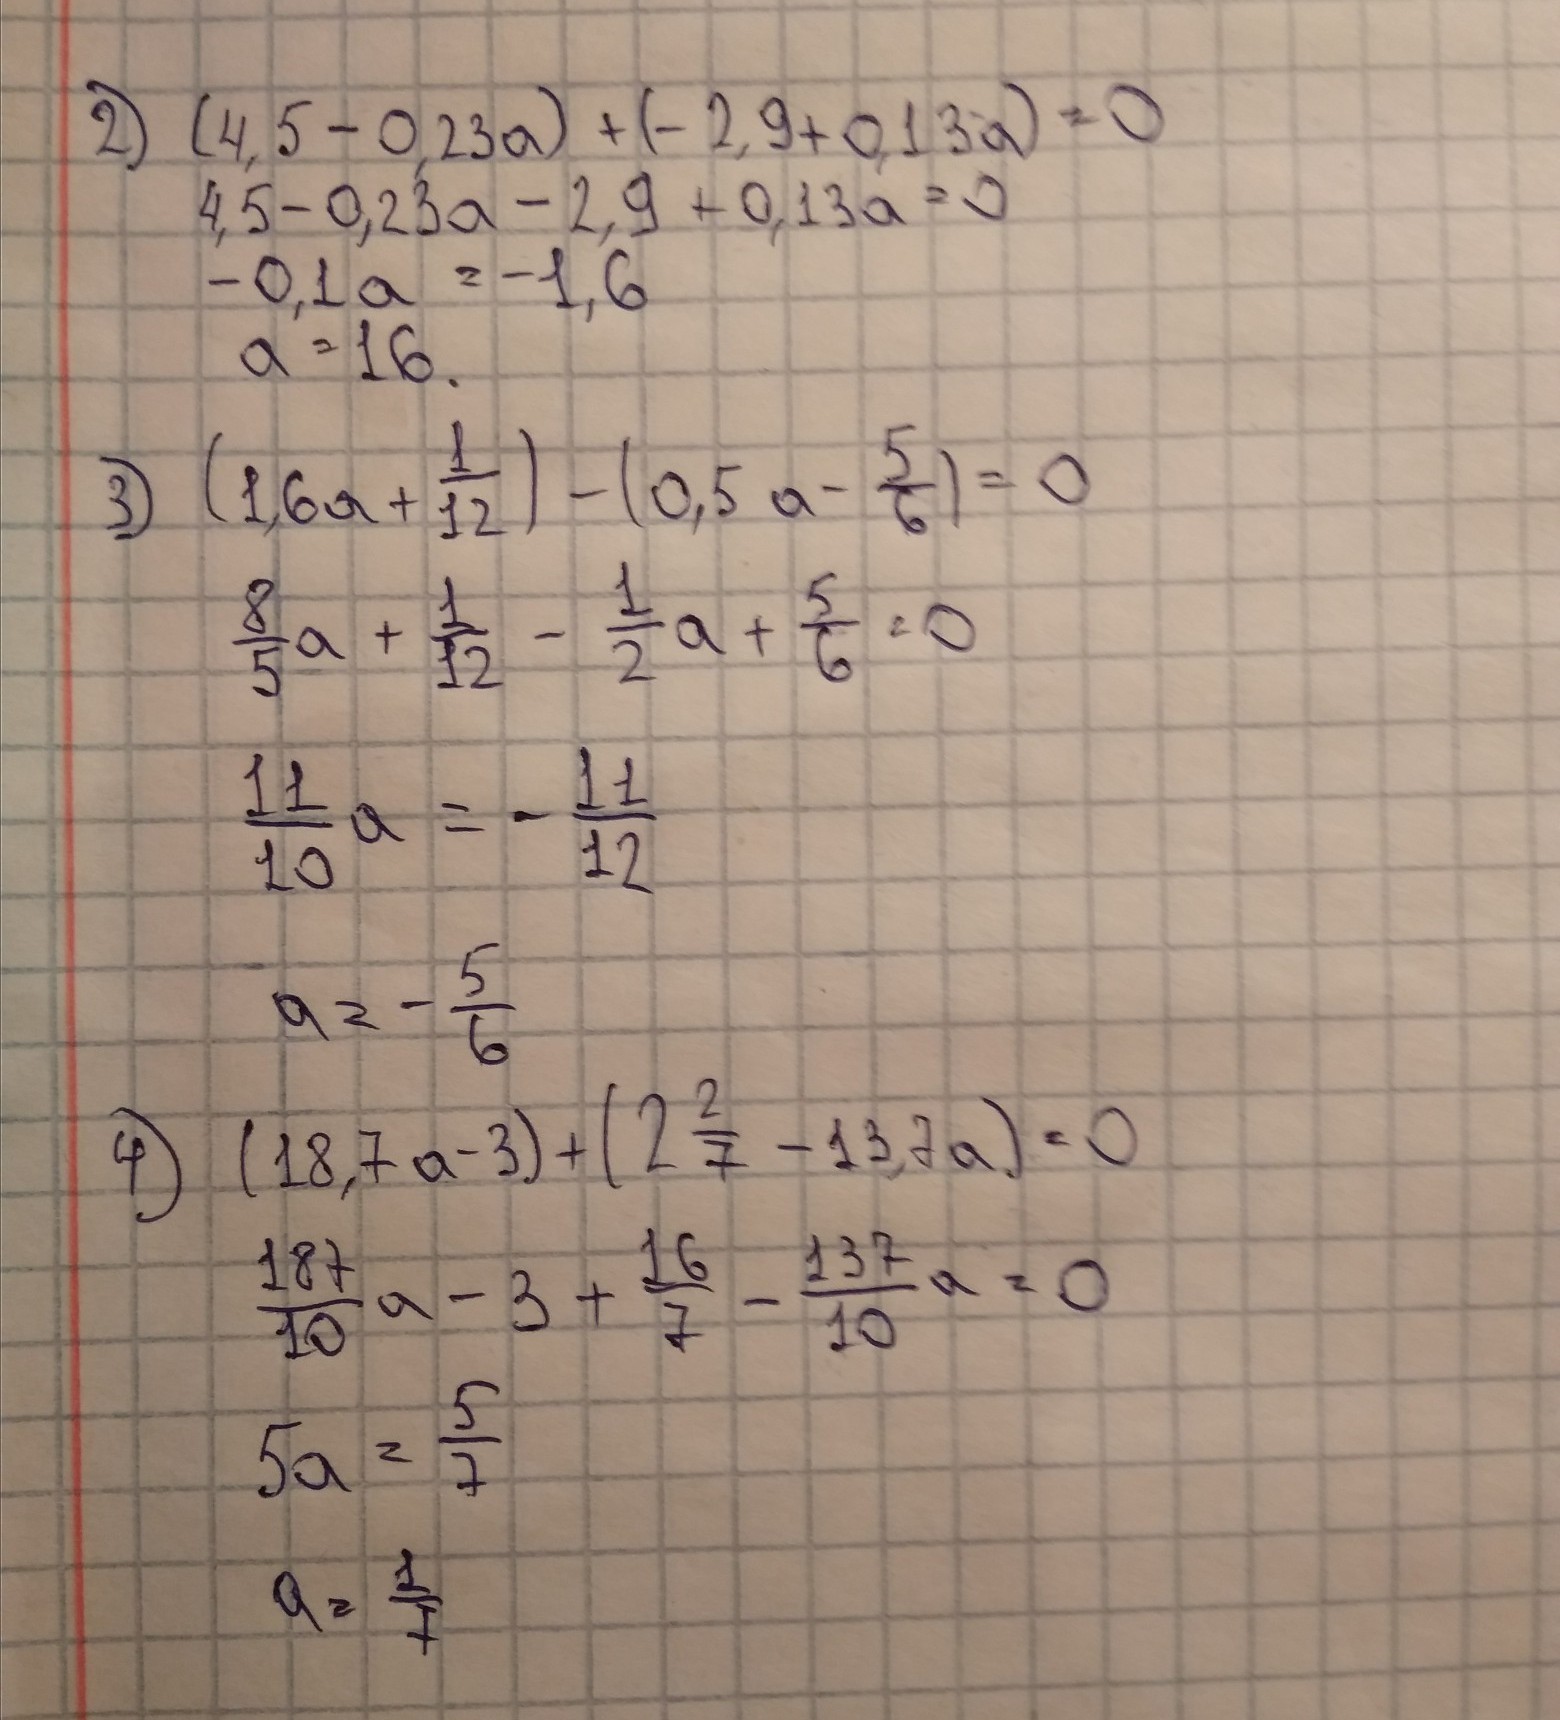 2) (4,5 - 0,23a) + (- 2,9 + 0,13a) = 0
4,5 - 0,23a - 2,9 + 0,13a = 0
- 0,1a = - 1,6
a = 16.
3) (1,6a + 1/12) - (0,5a - 5/6) = 0
8/5 a + 1/12 - 1/2 a + 5/6 = 0
11/10 a = - 11/12
a = - 5/6
4) (18,7a - 3) + (2 2/7 - 13,7a) = 0
187/10 a - 3 + 16/7 - 137/10 a = 0
5a = 5/7
a = 1/7